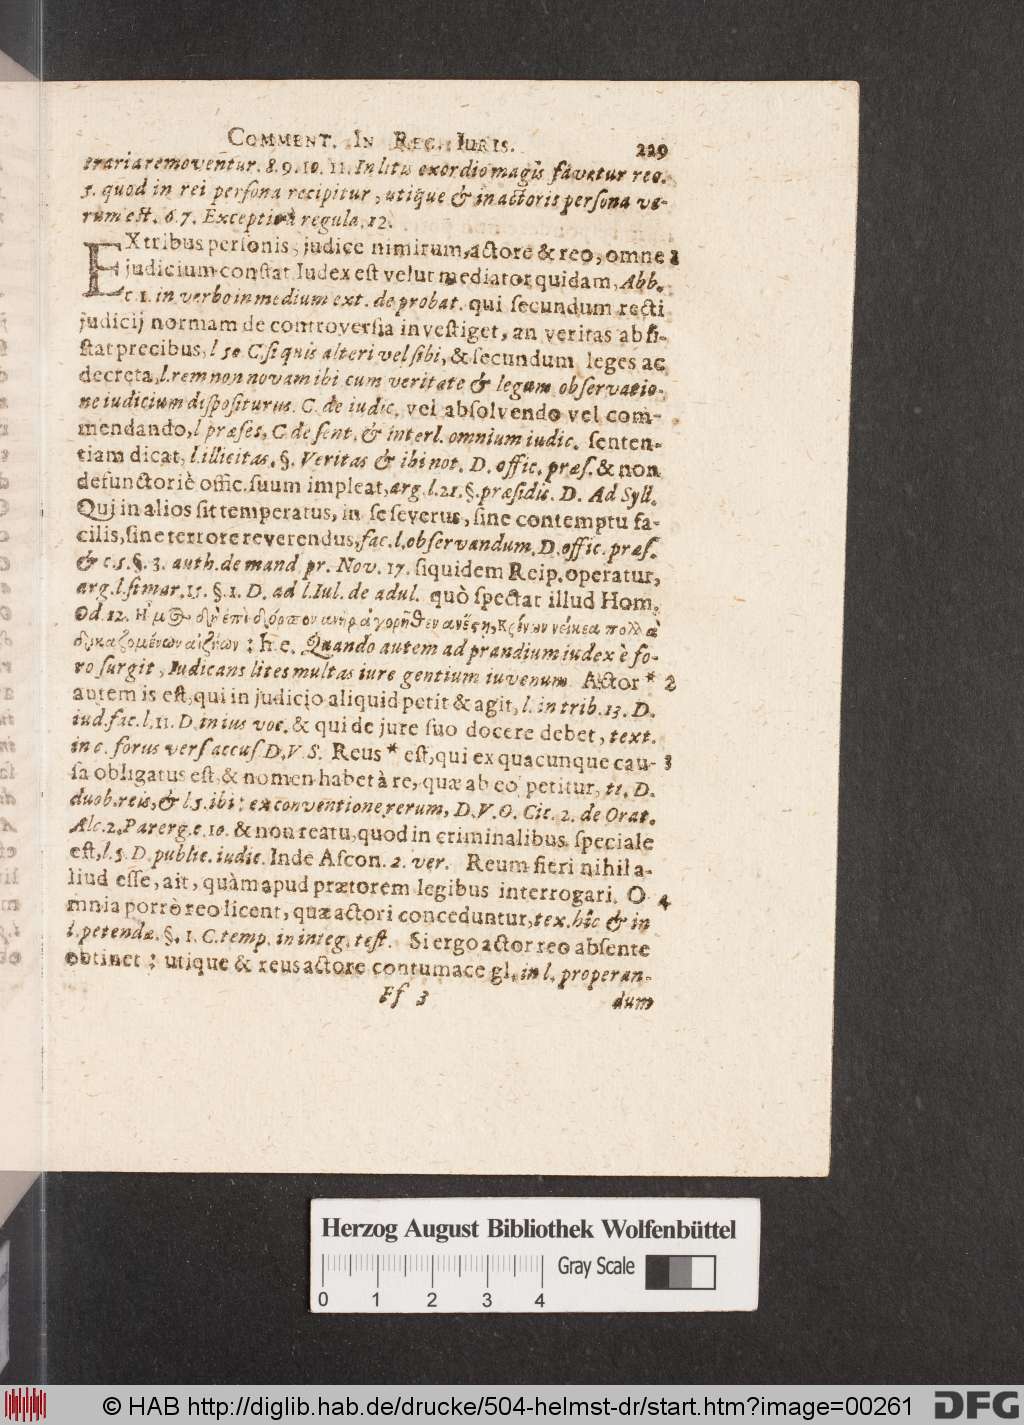 COMMENT. IN REG. IURIS. 229
trariaremoventur. 8. 9. 10. 11. In litis exordio magis favetur reo.
5. quod in rei persona recipitur, utique & in actoris persona ve-
rum est. 6. 7. Exceptio à regula. 12.
EXtribus personis, judice nimirum, actore & reo, omne 1
judicium constat. Iudex est velut mediator quidam, Abb.
c. 1. in verbo in medium ext. de probat. qui secundum recti
judicij normam de controversia investiget, an veritas absi-
stat precibus, l 5o C. si quis alteri vel sibi, & secundum leges ac
decreta, l. rem non novam ibi cum veritate & legum observatio-
ne iudicium dispositurus. C. de iudic. vel absolvendo vel com-
mendando, l præses, C de sent. & interl. omnium iudic. senten-
tiam dicat, l. illicitas. §. Veritas & ibi not. D. offic. præs. & non
defunctoriè offic. suum impleat, arg. l. 21. §. præsidis. D. Ad Syll.
Qui in alios sit temperatus, in se severus, sine contemptu fa-
cilis, sine terrore reverendus, fac. l. observandum. D. offic. præs.
& c. 5. §. 3. auth. de mand pr. Nov. 17. siquidem Reip. operatur,
arg. l. si mar. 15. §. 1. D. ad l. Iul. de adul. quò spectat illud Hom.
Od. 12. ἐπὶ δόρπον ἀνὴρ ἀγορῆθεν ἀνέστη, Κρίνων νείκεα πολλὰ
δικαζομένων αἰζηῶν : h. e. Quando autem ad prandium iudex è fo-
ro surgit, Iudicans lites multas iure gentium iuvenum. Actor * 2
autem is est, qui in judicio aliquid petit & agit, l. in trib. 13. D.
iud. fac. l. 11. D. in ius voc. & qui de jure suo docere debet, text.
in c. forus vers accus D. V. S. Reus * est, qui ex quacunque cau- 3
sa obligatus est, & nomen habet à re, quæ ab eo petitur, tt. D.
duob. reis, & l. 5. ibi : ex conventione rerum, D. V. O. Cic. 2. de Orat.
Alc. 2. Parerg. c. 10. & non reatu, quod in criminalibus speciale
est, l. 5. D. public. iudic. Inde Ascon. 2. ver. Reum fieri nihil a-
liud esse, ait, quàm apud prætorem legibus interrogari. O 4
mnia porrò reo licent, quæ actori conceduntur, tex. hîc & in
l. petendæ. §. 1. C. temp. in integ. test. Si ergo actor reo absente
obtinet : utique & reus actore contumace gl. in l. properan-
Ff 3 dum
Herzog August Bibliothek Wolfenbüttel
Gray Scale
0 1 2 3 4
© HAB http://diglib.hab.de/drucke/504-helmst-dr/start.htm?image=00261
DFG